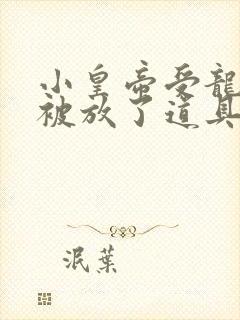 小皇帝受龍
被放了道具
泯葉